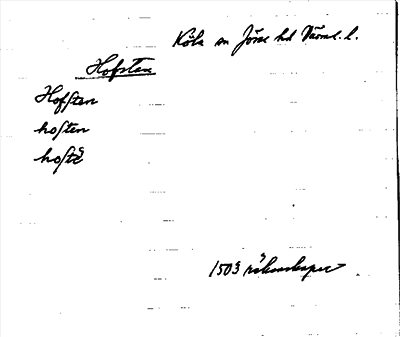 Köla sn Jösse hd Värml. l.
Hofsten
Hofsten
hosten
hoste
1503 räkenskaper